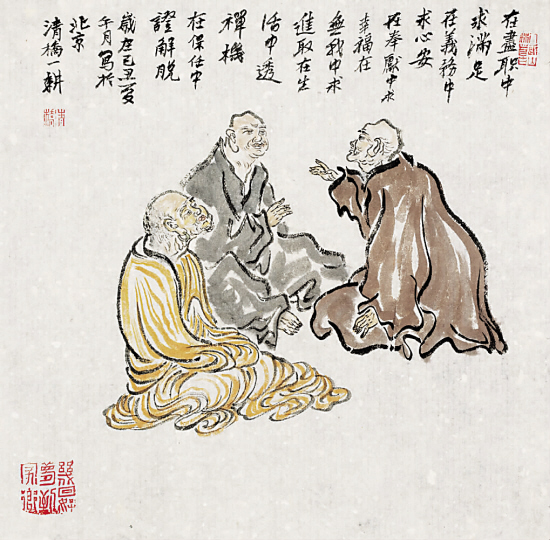 在盡職中
求滿足
在義務中
求心安
在奉獻中求
幸福在
無我中求
進取在生
活中透
禪機
在保任中
證解脫
歲在己丑夏
午月寫於
北京
清橋一耕